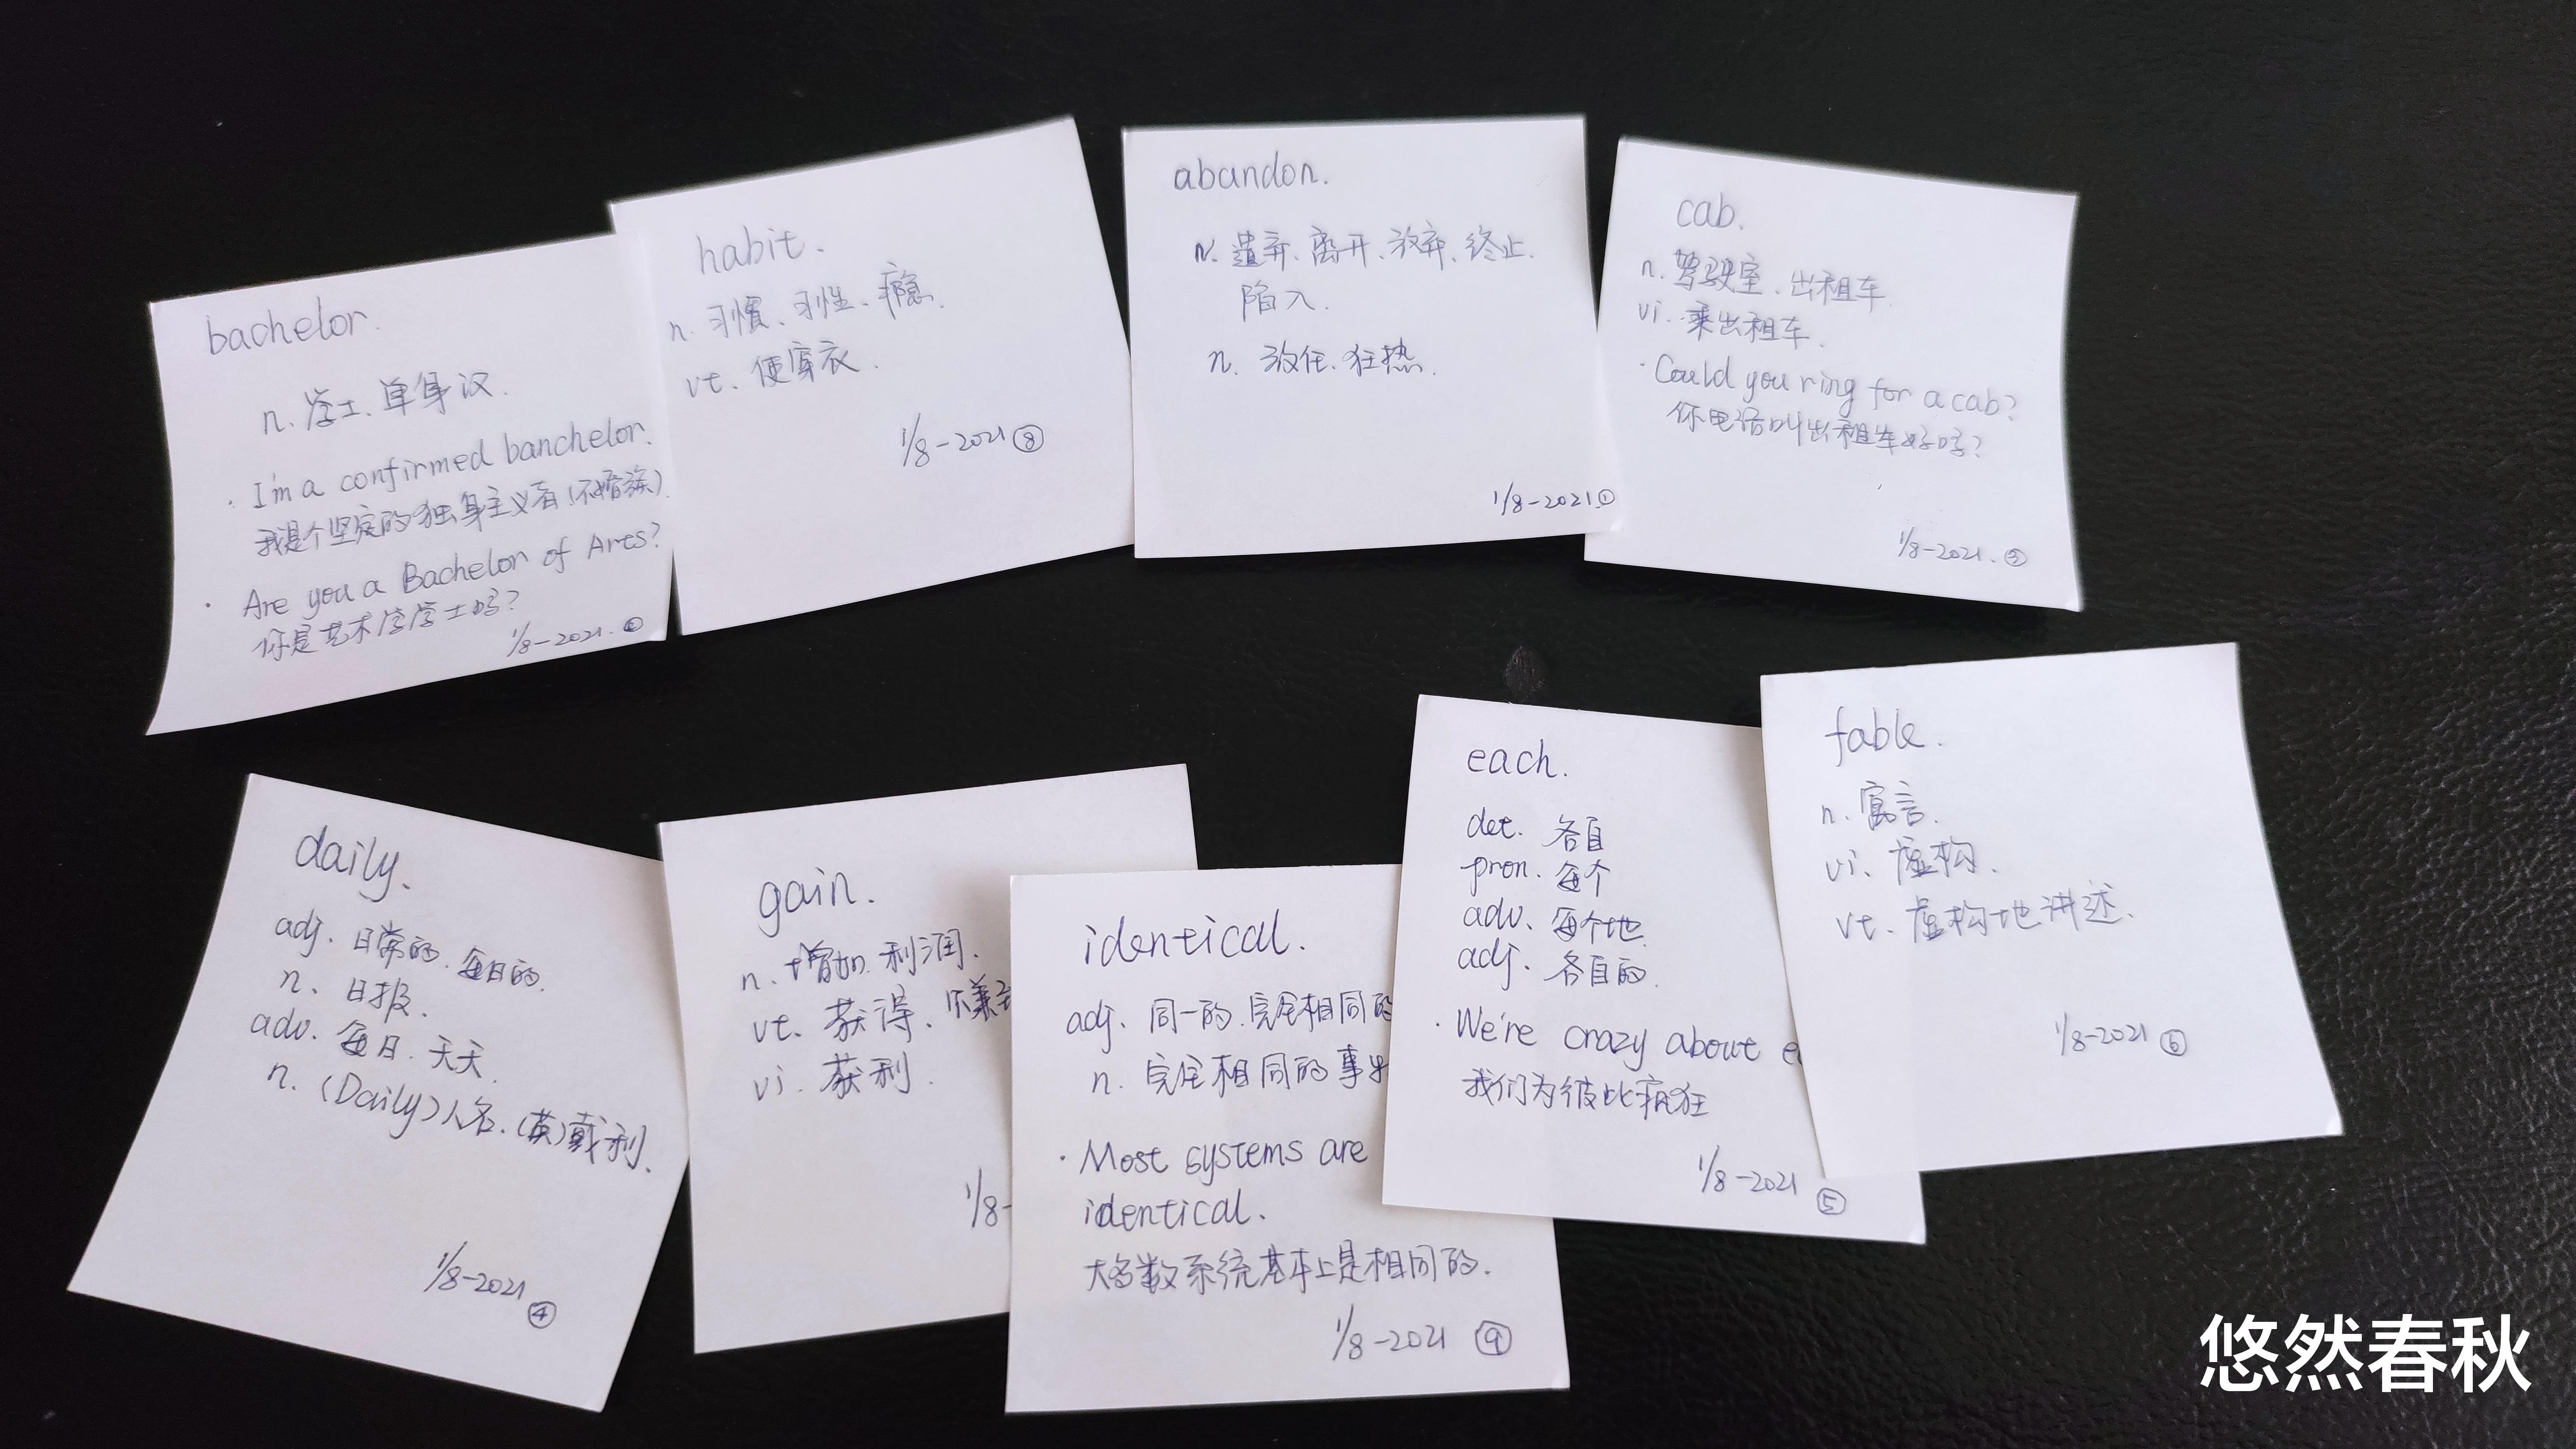 bachelor.
n. 学士、单身汉.
· I'm a confirmed banchelor.
我是个坚定的独身主义者(不婚族)
· Are you a Bachelor of Arts?
你是艺术学学士吗?
1/8-2021.②
habit.
n. 习惯、习性、瘾.
vt. 使穿衣.
1/8-2021⑧
abandon.
v. 遗弃、离开、放弃、终止.
陷入.
n. 放任、狂热.
1/8-2021①
cab.
n. 驾驶室、出租车
vi. 乘出租车.
· Could you ring for a cab?
你电话叫出租车好吗?
1/8-2021.③
daily.
adj. 日常的、每日的.
n. 日报.
adv. 每日、天天.
n. (Daily)人名.(英)戴利.
1/8-2021
④
gain.
n. 增加、利润.
vt. 获得、
vi. 获利.
1/8-
identical.
adj. 同一的.完全相同的
n. 完全相同的事
· Most systems are
identical.
大多数系统基本上是相同的.
1/8-2021 ⑨
each.
det. 各自
pron. 每个
adv. 每个地
adj. 各自的.
· We're crazy about
我们为彼此疯狂
1/8-2021 ⑤
fable.
n. 寓言.
vi. 虚构.
vt. 虚构地讲述.
1/8-2021 ⑥
悠然春秋